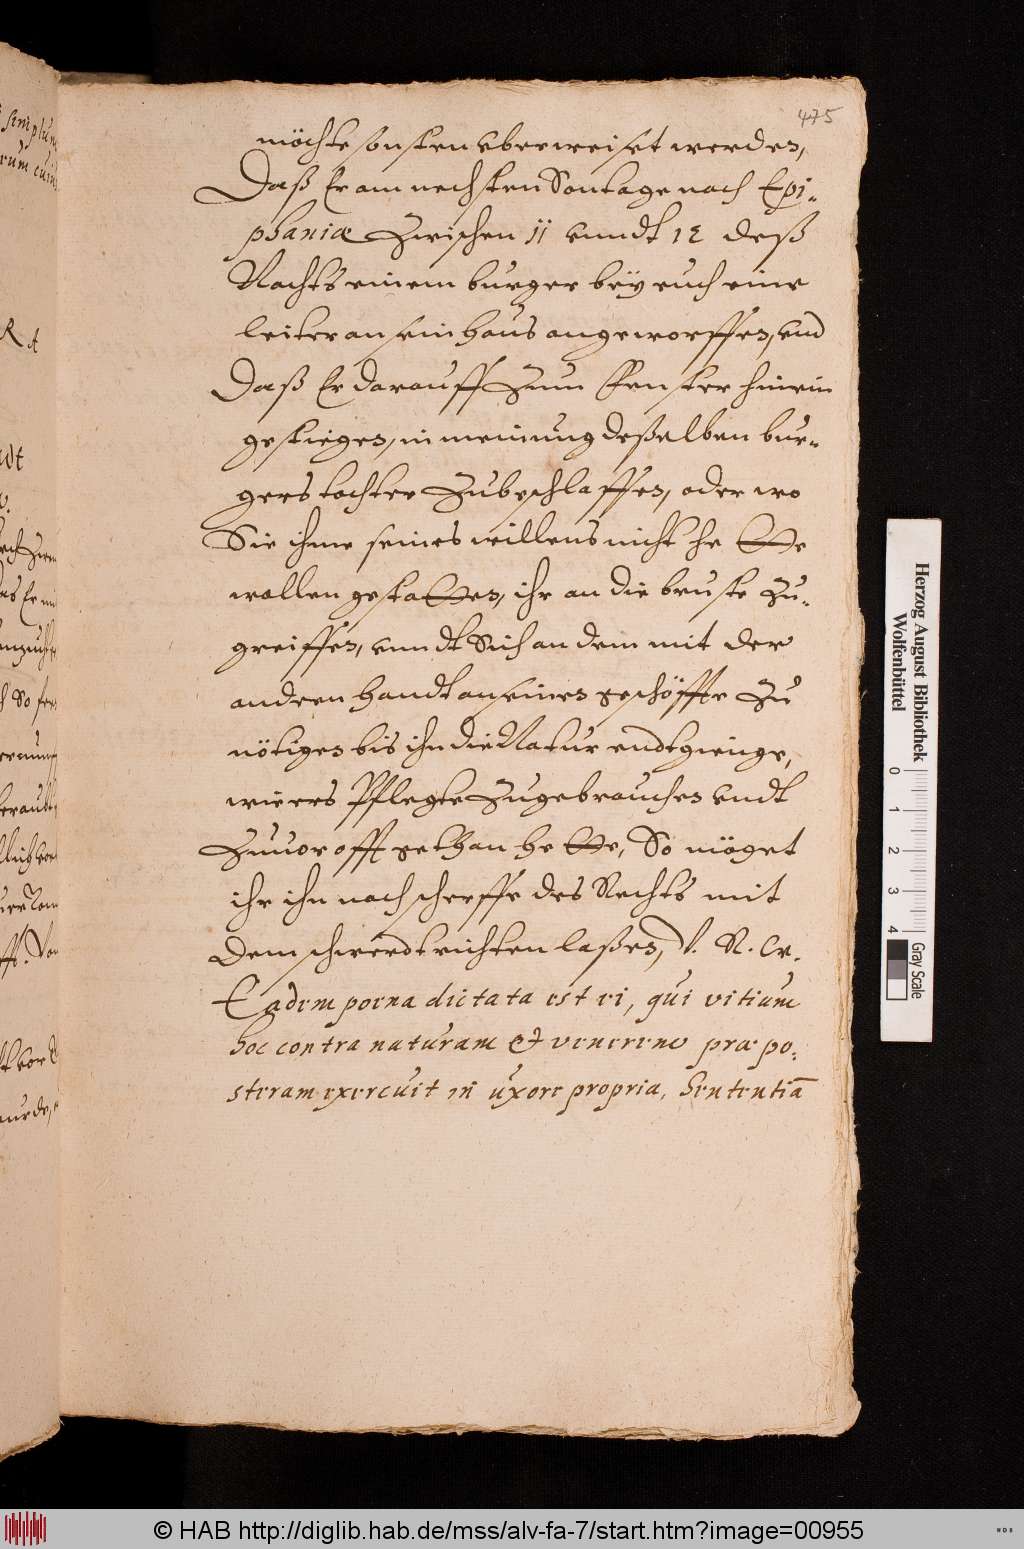 475
möchte sonsten vberweiset werden,
Daß Er am nechsten Sontage nach Epi-
phaniæ Zwischen 11 vnndt 12 deß
Nachts einem burger bey euch eine
leiter an sein haus angeworffen, vnd
Daß Er darauff Zum Fenster hinein
gestiegen, in meinung deßelben bur-
gers tochter Zubeschlaffen, oder wo
Sie ihme seines willens nicht hette
wollen gestatten, ihr an die bruste Zu-
greiffen, vnndt Sich an dem mit der
andren handt an seines geschöffte Zu
nötigen bis ihn die Natur endtgienge,
wie ers Pflegte Zugebrauchen vndt
Zuuor offt gethan hette, So möget
ihr ihn nach scherffe des Rechts mit
dem schwerdt richten laßen, V. R. W.
Eadem poena dictata est ei, qui vitium
hoc contra naturam & venerem præpo-
steram exercuit in uxore propria, Sententiā
Herzog August Bibliothek
Wolfenbüttel
0 1 2 3 4
Gray Scale
© HAB http://diglib.hab.de/mss/alv-fa-7/start.htm?image=00955